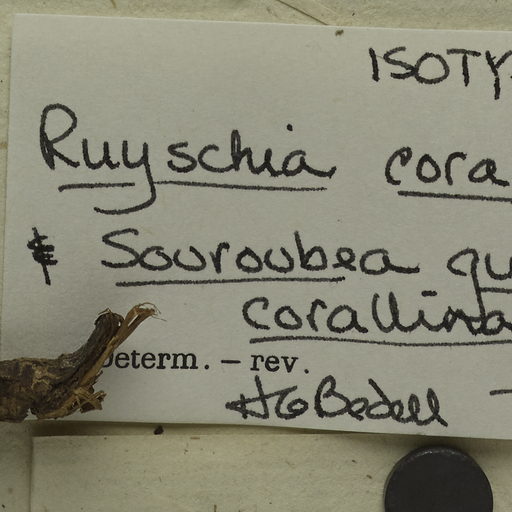 ISOTY
Ruyschia cora
& Souroubea gu
corallina
Determ. – rev.
HG Bedell